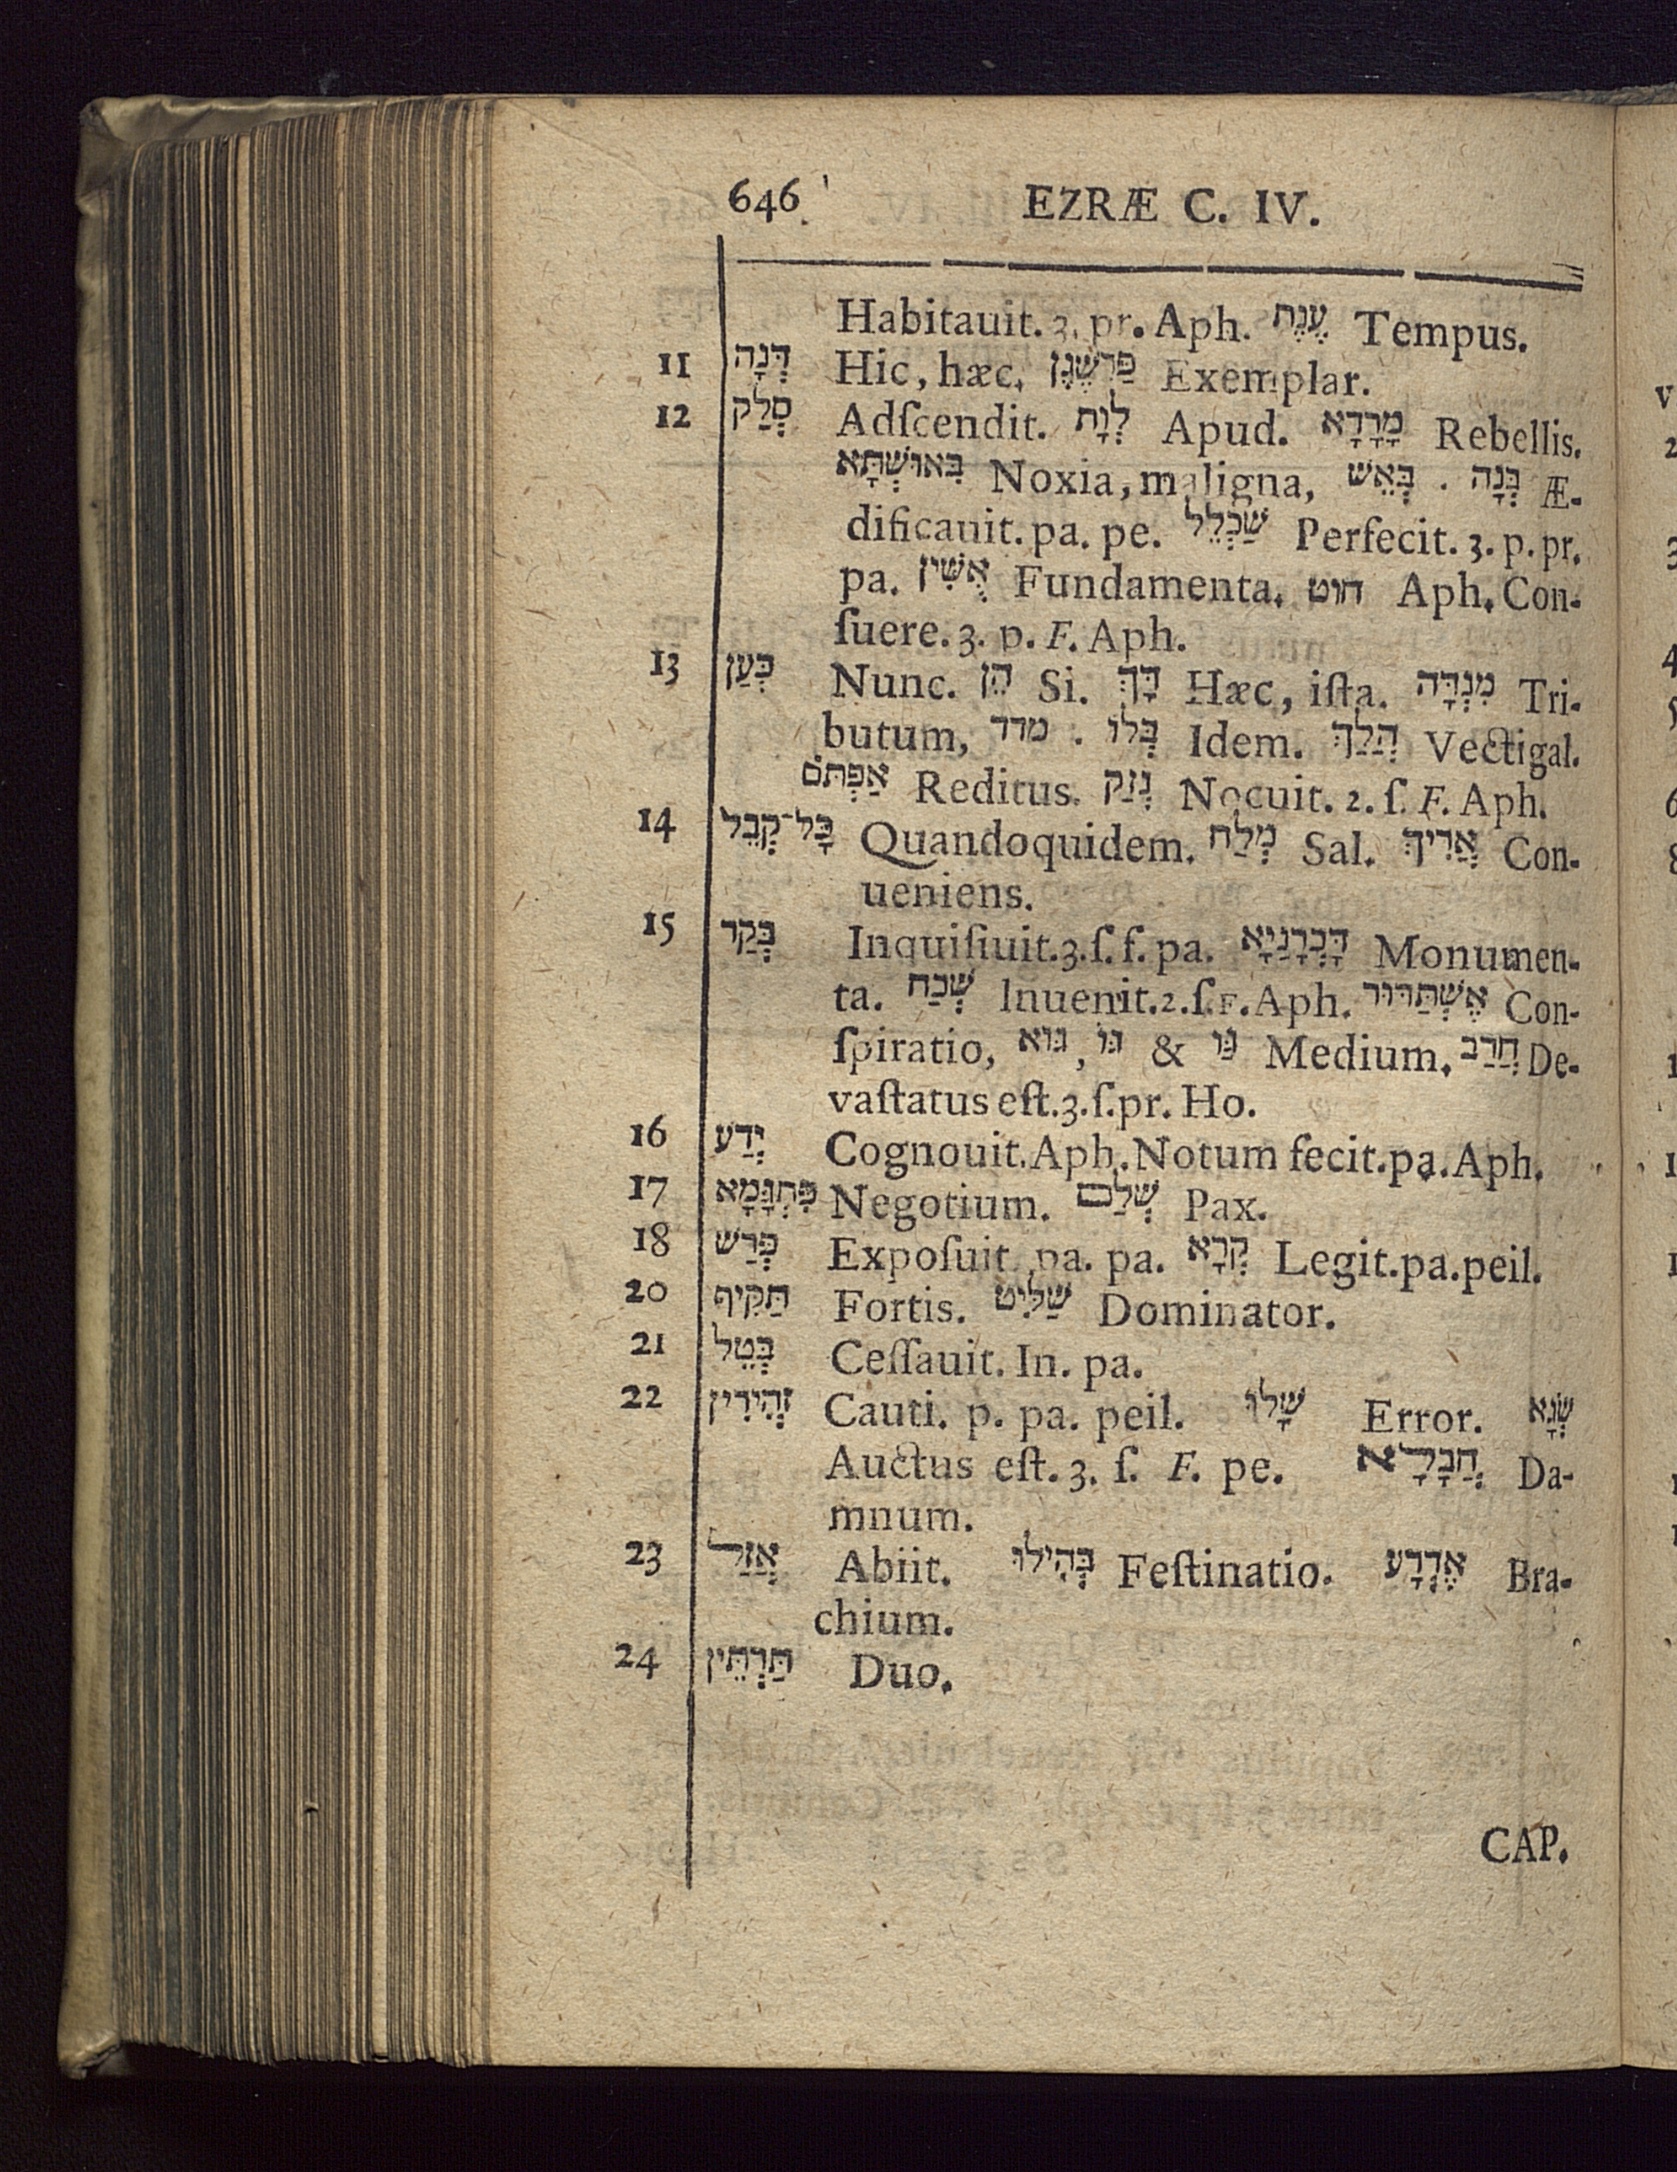 646 EZRÆ C. IV.
Habitauit. 3. pr. Aph. עֶנֶת Tempus.
11 דְּנָה Hic, hæc. פַּרְשֶׁגֶן Exemplar.
12 סְלַק Adſcendit. לְוָת Apud. מָרָדָא Rebellis.
בִּאוּשְׁתָּא Noxia, maligna, בְּאֵשׁ . בְּנָה Æ-
dificauit. pa. pe. שַׁכְלֵל Perfecit. 3. p. pr.
pa. אֻשִּׁין Fundamenta. חוט Aph. Con-
ſuere. 3. p. F. Aph.
13 כְּעַן Nunc. הֵן Si. דָּךְ Hæc, iſta. מִנְדָּה Tri-
butum, מדד . בְּלוֹ Idem. הֲלַךְ Vectigal.
אַפְּתֹם Reditus. נְזַק Nocuit. 2. ſ. F. Aph.
14 כָּל־קְבֵל Quandoquidem. מְלַח Sal. אֲרִיךְ Con-
ueniens.
15 בְּקַר Inquiſiuit. 3. ſ. f. pa. דָּכְרָנַיָּא Monumen-
ta. שְׁכַח Inuenit. 2. ſ. F. Aph. אֶשְׁתַּדּוּר Con-
ſpiratio, גּוא, גּוֹ & גַּו Medium. חֲרַב De-
vaſtatus eſt. 3. ſ. pr. Ho.
16 יְדַע Cognouit. Aph. Notum fecit. pa. Aph.
17 פִּתְגָּמָא Negotium. שְׁלַם Pax.
18 פְּרַשׁ Expoſuit pa. pa. קְרָא Legit. pa. peil.
20 תַּקִּיף Fortis. שַׁלִּיט Dominator.
21 בְּטֵל Ceſſauit. In. pa.
22 זְהִירִין Cauti. p. pa. peil. שָׁלוּ Error. שְׂגָא
Auctus eſt. 3. ſ. F. pe. חֲבָלָא Da-
mnum.
23 אֲזַל Abiit. בְּהִילוּ Feſtinatio. אֶדְרָע Bra-
chium.
24 תַּרְתֵּין Duo.
CAP.